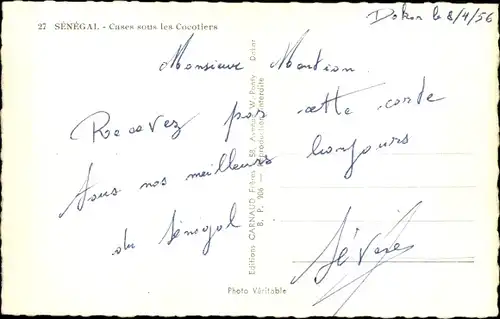 27 SÉNÉGAL - Cases sous les Cocotiers
Dakar le 8/4/56
Monsieur
Recevez par cette carte
Tous nos meilleurs bonjours
du Sénégal
Editions CARNAUD Frères - 51, Avenue W. Ponty Dakar
B. P. 206 — Reproduction interdite
Photo Véritable